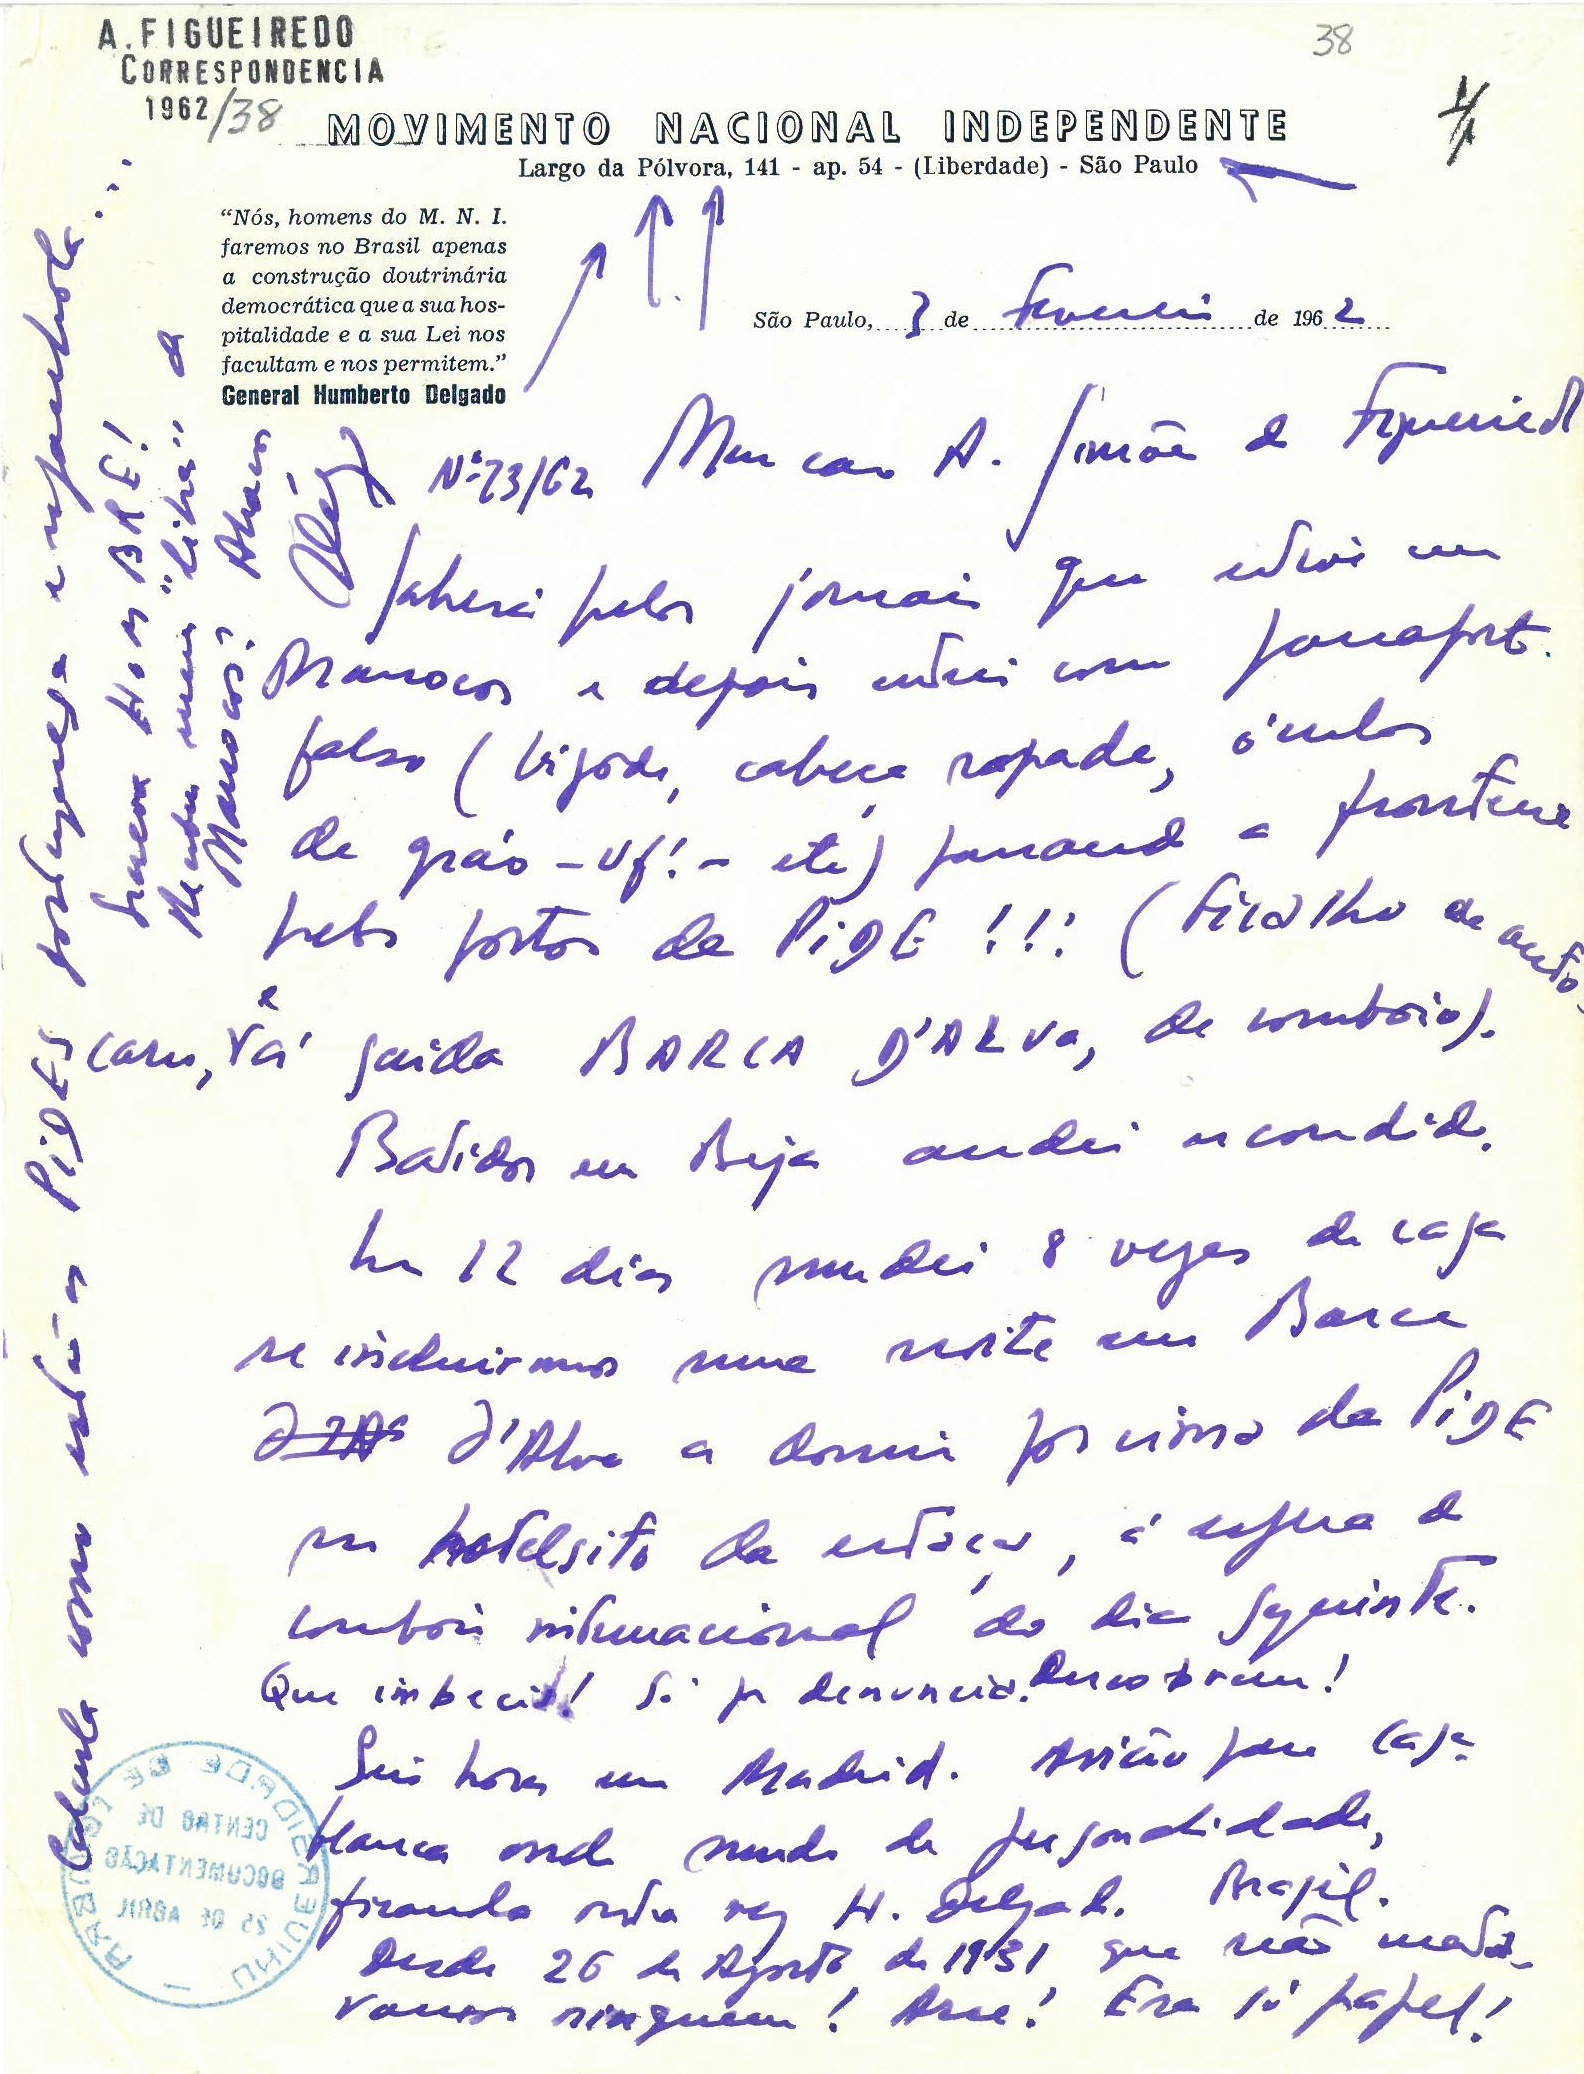 A. FIGUEIREDO
CORRESPONDENCIA
1962/38
38
1/1
MOVIMENTO NACIONAL INDEPENDENTE
Largo da Pólvora, 141 - ap. 54 - (Liberdade) - São Paulo
“Nós, homens do M. N. I.
faremos no Brasil apenas
a construção doutrinária
democrática que a sua hos-
pitalidade e a sua Lei nos
facultam e nos permitem.”
General Humberto Delgado
São Paulo, 3 de Fevereiro de 1962
Nº 73/62 Meu caro A. Simões de Figueiredo
Saberá pelos jornais que estive em
Marrocos e depois entrei com passaporte
falso (bigode, cabeça rapada, óculos
de grão - Uf! - etc) passando a fronteira
pelos postos da PIDE!!! (Ficalho de auto
carro, e saída BARCA D'ALVA, de comboio).
Batidos em Beja andei escondido.
Em 12 dias mudei 8 vezes de casa
se incluirmos uma noite em Barca
D'Alva a dormir por cima da PIDE
no hotelsito da estação, à espera do
comboio internacional do dia seguinte.
Que imbecis! Só por denuncia. Descobrem!
Seis horas em Madrid. Avião para Casa
blanca onde mudo de personalidade,
ficando outra vez H. Delgado. Brasil.
Desde 26 de Agosto de 1931 que não matá-
vamos ninguem! Arre! Era só papel!
Calcule como estão as PIDES portuguesa e espanhola...
HOMBRE!
"libre" a
Marrocos? Abraços